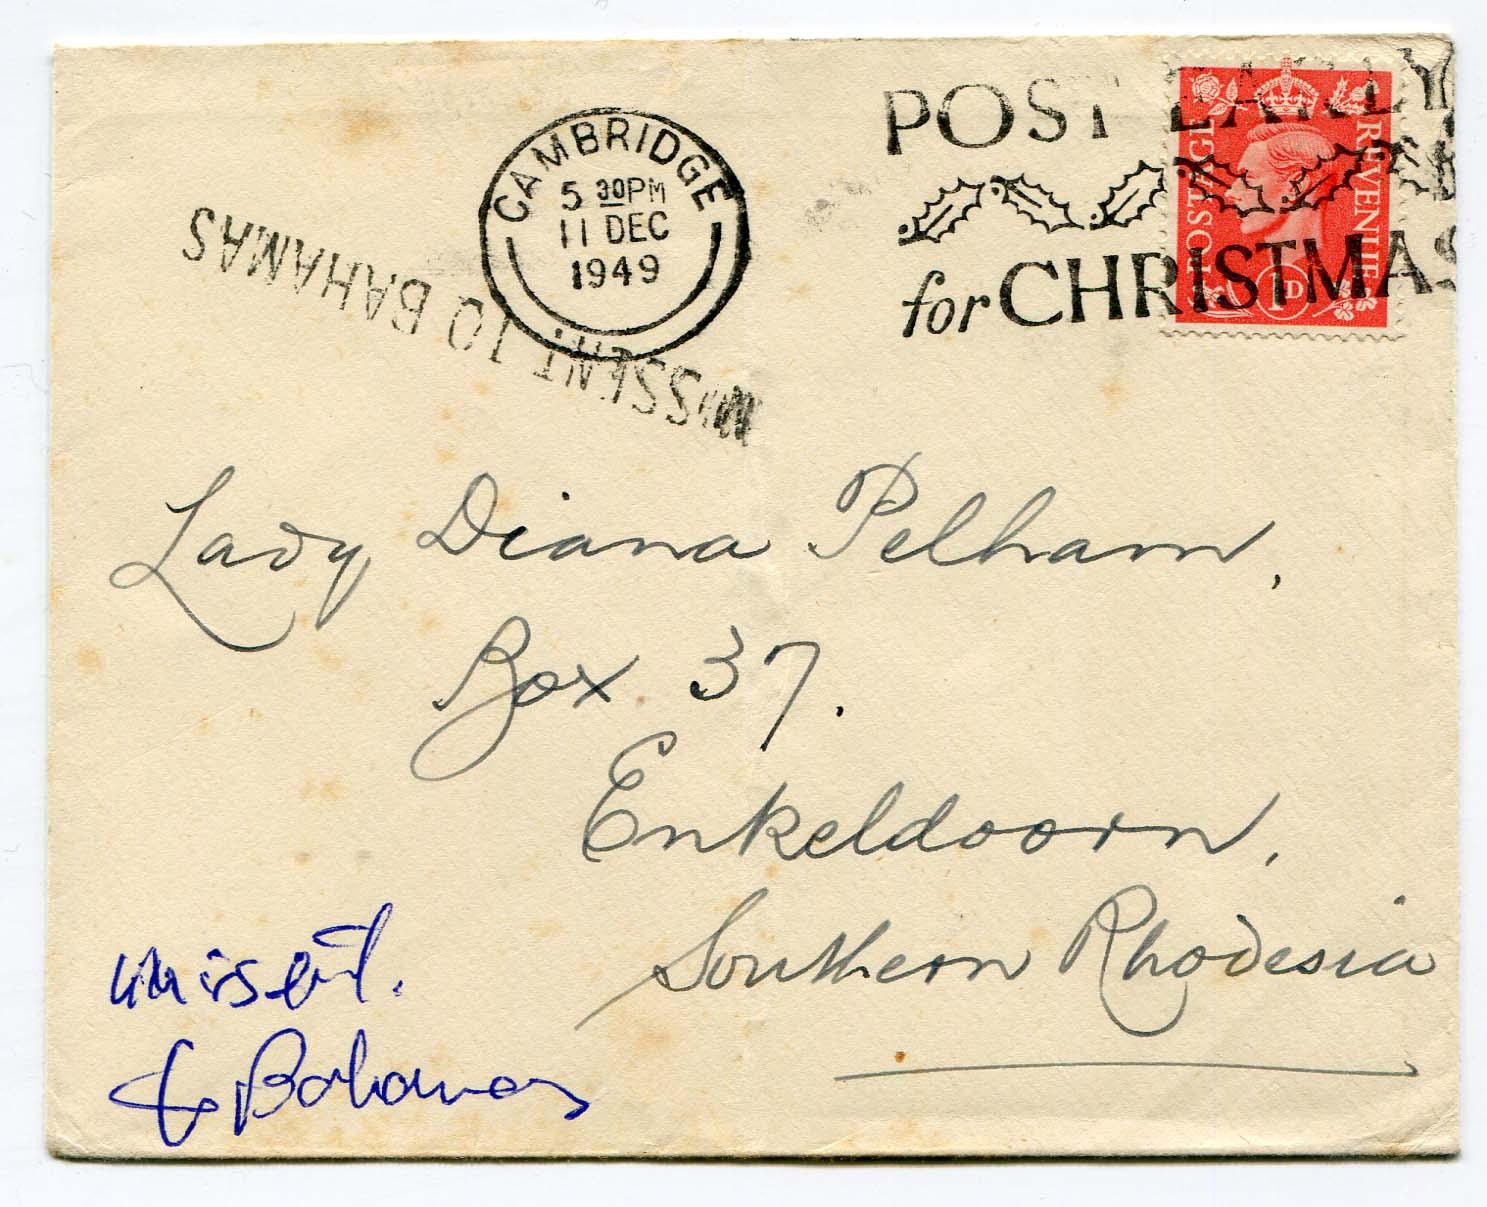 CAMBRIDGE
5 30PM
11 DEC
1949
POST EARLY
for CHRISTMAS
POSTAGE
REVENUE
1D
MISSENT TO BAHAMAS
Lady Diana Pelham,
Box 37.
Enkeldoorn,
Southern Rhodesia
missent.
to Bahamas